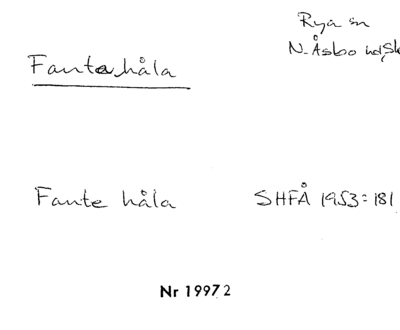 Rya sn
N. Åsbo hd, Sk
Fantehåla
Fante håla
SHFÅ 1953: 181
Nr 19997 2